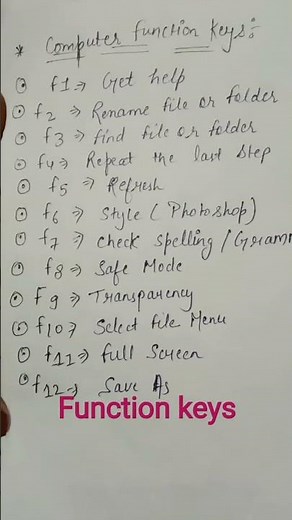 * Computer function keys:-
f1 => Get help
f2 => Rename file or folder
f3 => find file or folder
f4 => Repeat the last step
f5 => Refresh
f6 => Style ( Photoshop)
f7 => check spelling /
f8 => Safe Mode
F9 => Transparency
f10 => Select file Menu
f11 => full Screen
f12 => Save As
Function keys